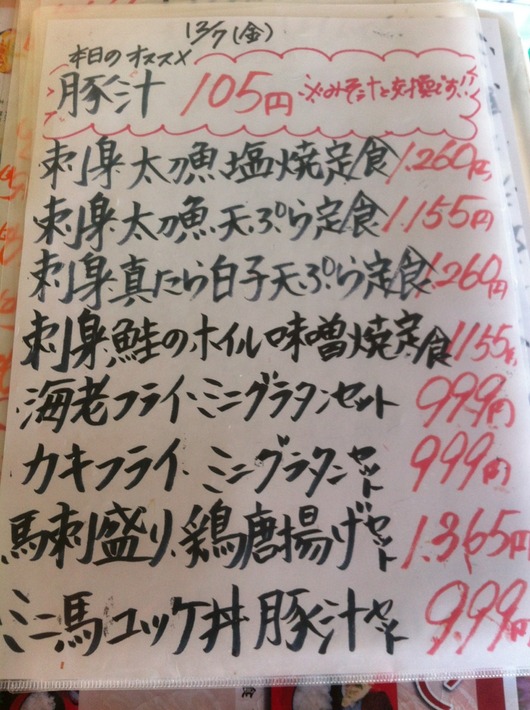 12/7(金)
本日のオススメ
豚汁 105円 ※みそ汁と交換です!!
刺身 太刀魚塩焼定食 1.260円
刺身 太刀魚天ぷら定食 1.155円
刺身真たら白子天ぷら定食 1.260円
刺身鮭のホイル味噌焼定食 1155円
海老フライ・ミニグラタンセット 999円
カキフライ ミニグラタンセット 999円
馬刺盛り.鶏唐揚げセット 1.365円
ミニ馬ユッケ丼 豚汁セット 999円